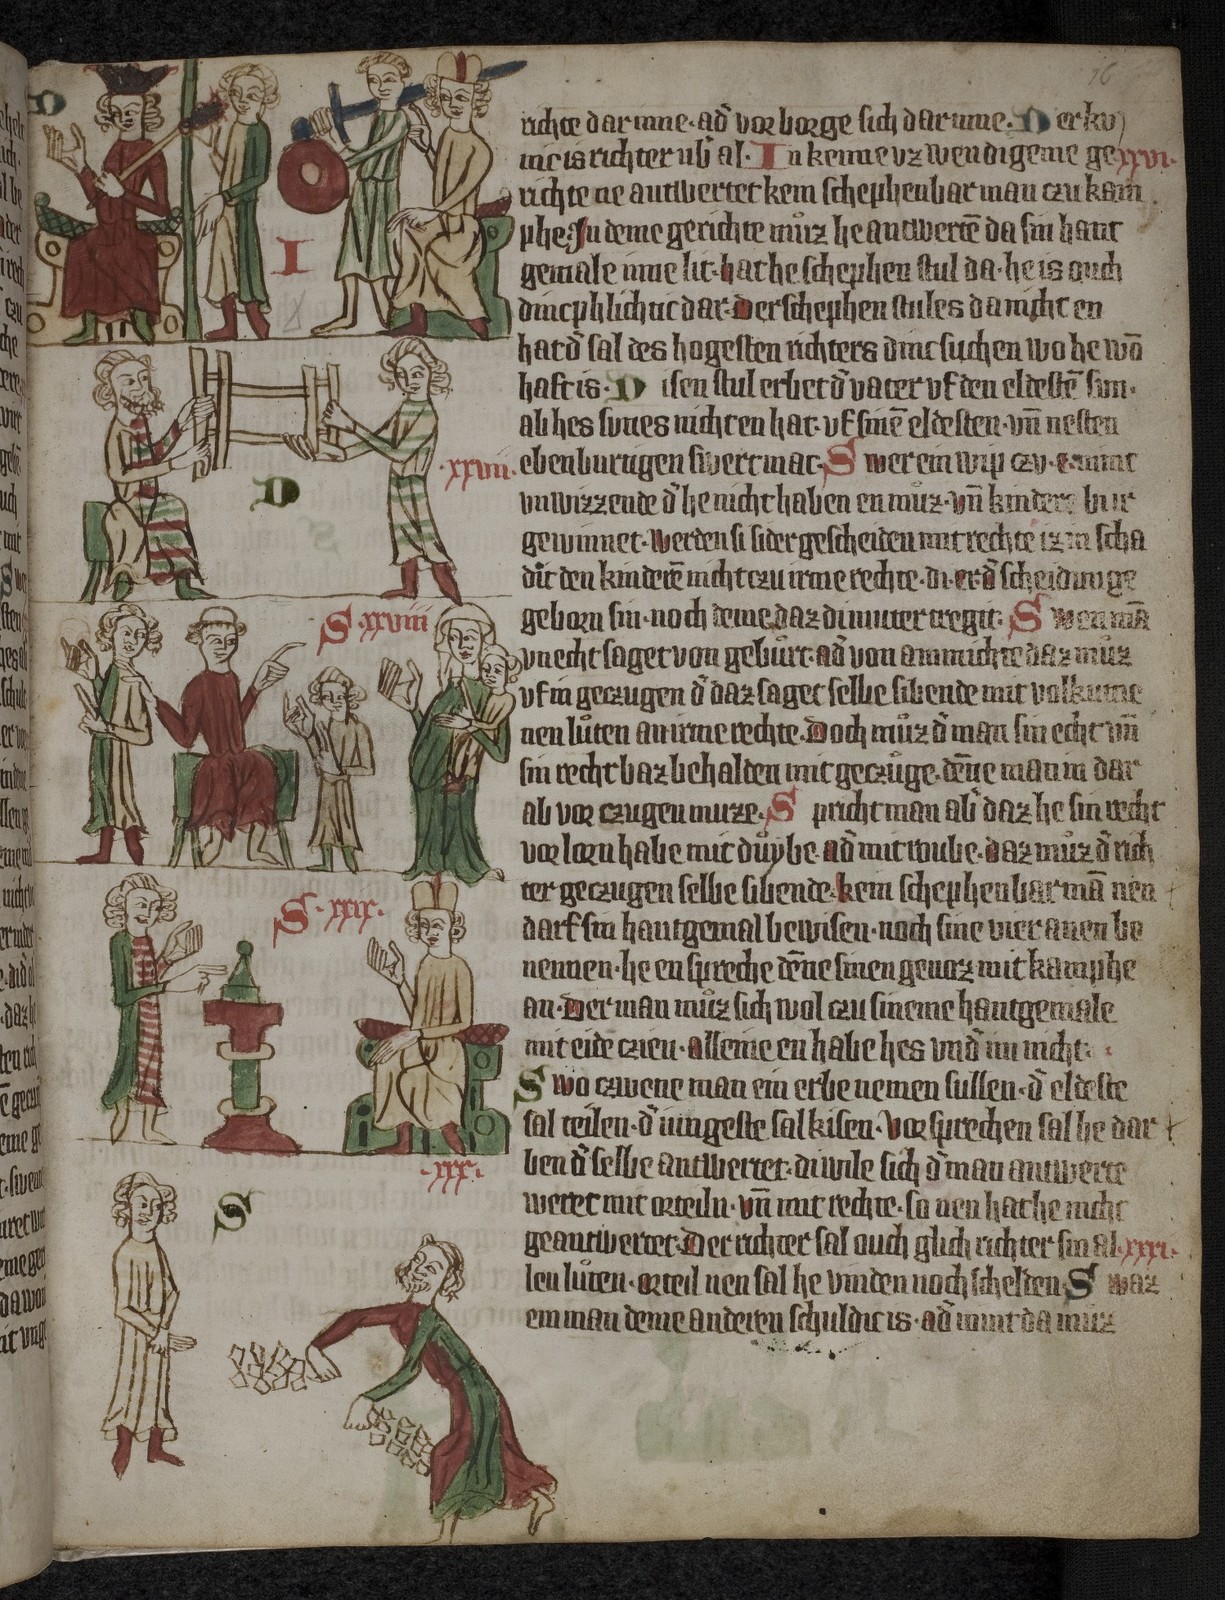 16
richte dar inne· ad̄ vor borge sich dar inne· D er kv
inc is richter ub̄ al· I n keime vz wendigeme ge xxvi·
richte ne antwertet kein schephenbar man czu kam
phe· In deme gerichte můz he antwertē da sin hant
gemale inne lit· hat he schephen stul da· he is ouch
dincphlichtic dar· Der schephen stules da nicht en
hat d̄ sal des hogesten richters dinc suchen wo he wō
haft is· D isen stul erbet d̄ vater vf den eldestē sun·
ab hes sunes nicht en hat· vf sinē eldesten· vn̄ nesten
·xxvii· ebenburtigen swertmac· S wer ein wip czu e nimt
vnwizzende d̄ he nicht haben en můz· vn̄ kindere bi ir
gewinnet· Werden si sider gescheiden mit rechte iz in scha
dit den kinderē nicht czu irme rechte· di er d̄ scheidunge
geborn sin· noch deme daz di muter tregit· S wen mā
S·xxviii
vnecht saget von gebůrt· ad̄ von ammichte daz můz
vf in geczugen d̄ daz saget selbe sibende mit volkume
nen lůten an irme rechte· Doch můz d̄ man sin echt vn̄
sin recht baz behalden mit geczůge· dēne man in dar
ab vor czugen muze· S pricht man ab̄ daz he sin recht
vorlorn habe mit důybe· ad̄ mit roube· daz můz d̄ rich
ter geczugen selbe sibende· kein schephenbar mā nen
S·xxix·
darf sin hantgemal bewisen· noch sine vier anen be
nennen· he en spreche dēne sinen genoz mit kamphe
an· Der man můz sich wol czu sineme hantgemale
mit eide czien· alleine en habe hes vnd̄ im nicht·
S wo czwene man ein erbe nemen sullen· d̄ eldeste
sal teilen· d̄ iungeste sal kisen· Vorsprechen sal he dar
·xxx·
ben d̄ selbe antwertet· di wile sich d̄ man antwerte
weret mit orteiln· vn̄ mit rechte· so nen hat he nicht
S
geantwertet· Der richter sal ouch glich richter sin al xxxi·
len lůten· orteil nen sal he vinden noch schelden· S waz
ein man deme anderen schuldic is· ad̄ nimt da můz
D
I
D